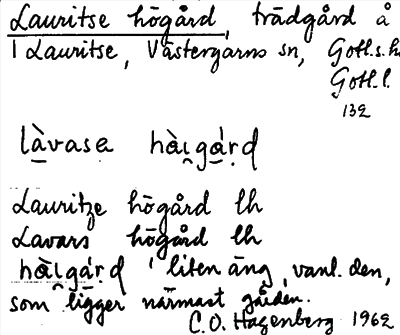 Lauritse högård, trädgård å
1 Lauritse, Västergarns sn, Gotl.s.h
Gotl.l.
132
làvasa hàɩ̯gá̱ṛd
Lauritze högård lh
Lavars högård lh
hàɩ̯gá̱ṛd 'liten äng, vanl. den,
som ligger närmast gården.
C.O. Hagenberg 1962